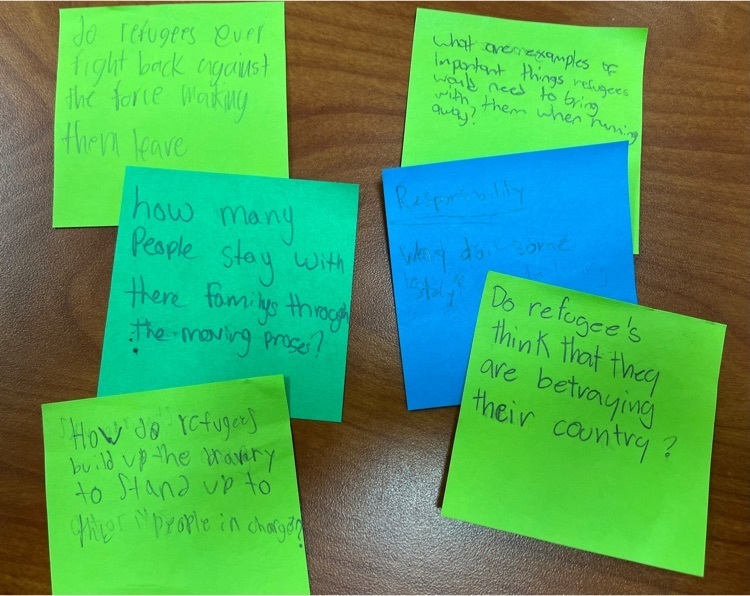 do refugees ever
fight back against
the force making
them leave
what are examples of
important things refugees
would need to bring
with them when running
away?
how many
People stay with
there familys through
the moving proses?
Responsibility
some
"stay"
Do refugee's
think that they
are betraying
their country?
How do refugees
build up the bravery
to stand up to
other people in charge?